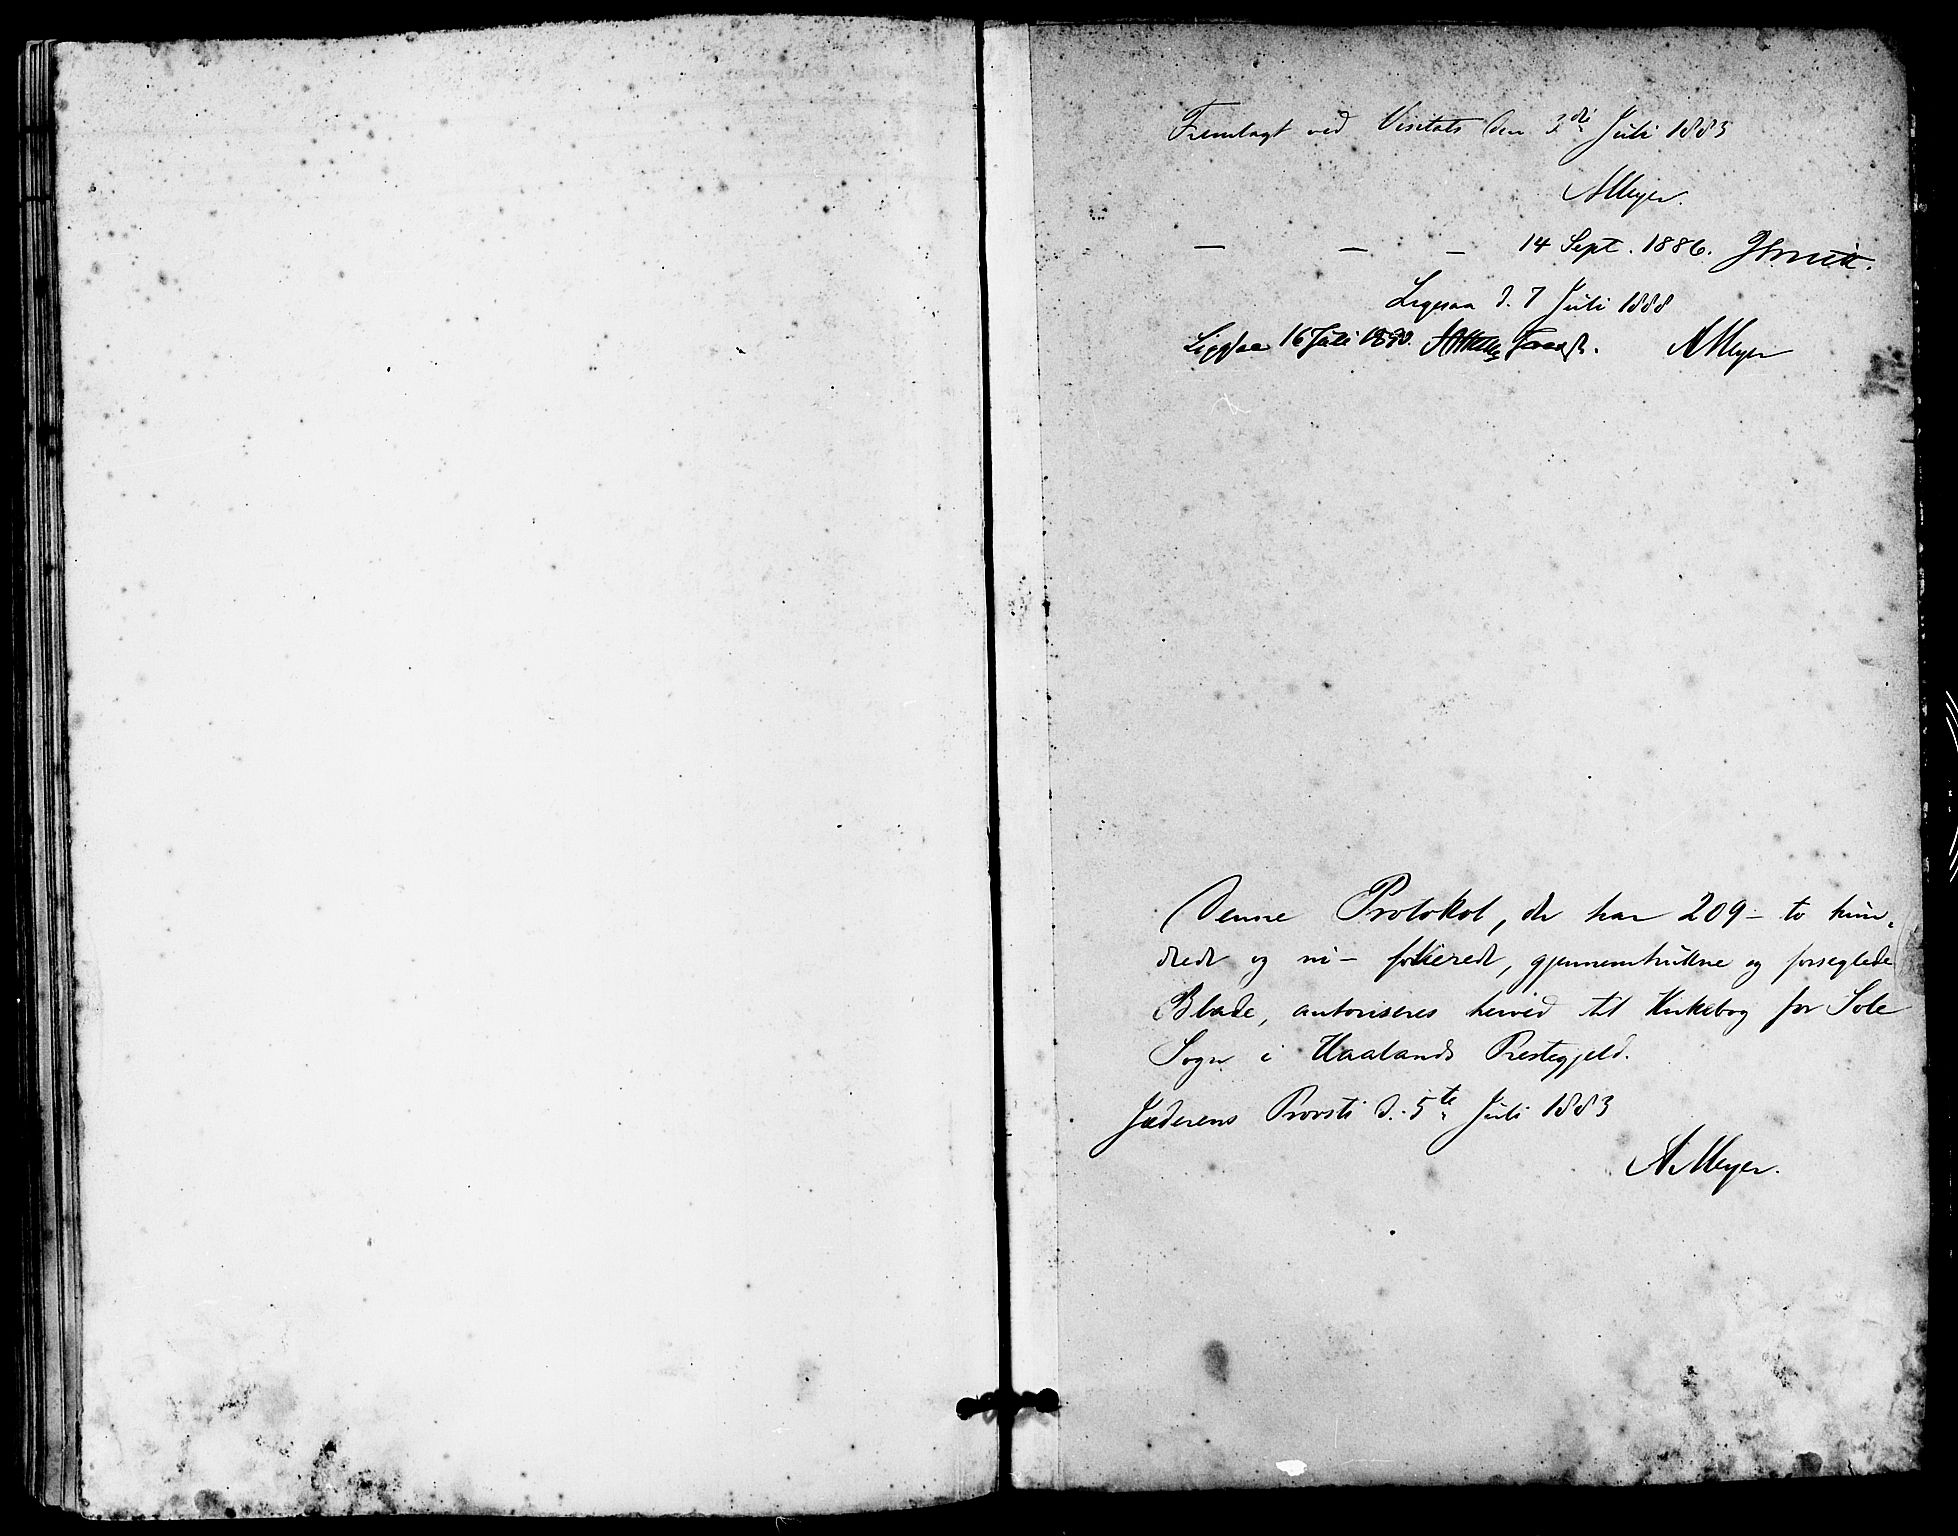 Fremlagt ved Visitats den 3die Juli 1883
AMeyer.
— — — 14 Sept. 1886. JSmitt.
Ligesaa d. 7 Juli 1888
Ligesaa 16 Juli 1890.
AMeyer
Denne Protokol, der har 209 – to hun-
drede og ni – folierede, gjennemtrukne og forseglede
Blade, autoriseres herved til Kirkebog for Sole
Sogn i Haalands Prestegjeld.
Jæderens Provsti d. 5te Juli 1883
AMeyer.